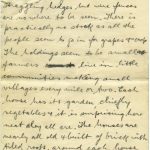 straggling hedges, but wire fences
are nowhere to be seen. There is
practically no stock as all the
people seem to go in for grapes &
The holdings seem to be small &
farmers live in little
communities making small
villages every mile or two. Each
house has its garden, chiefly
vegetables & it is surprising how
neat they all are. The houses are
nearly all old & built of brick with
tiled roofs, around each house